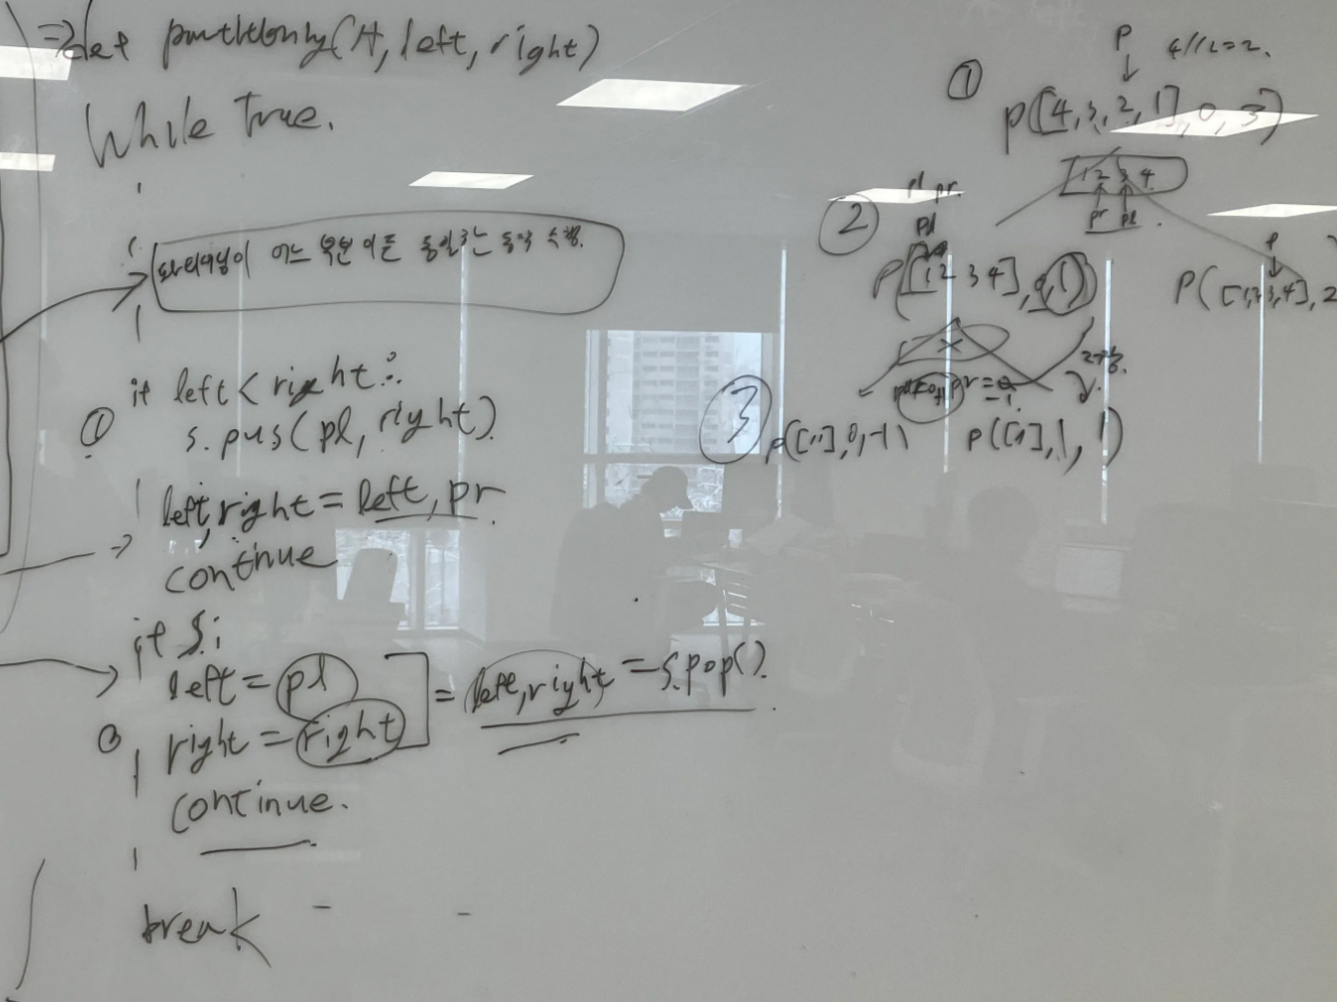 ⇒def partitiononly(A, left, right)
While True.
파티셔닝이 어느 부분 이든 동일한 동작 수행.
if left < right:
① s.pus(pl, right)
left, right = left, pr
continue
if S:
left = pl
right = right
= left, right = s.pop().
continue.
break
P
4//2=2.
①
p([4, 3, 2, 1], 0, 3)
1 2 3 4
pr pl
②
pl pr.
pl
P([1 2 3 4], 0, 1)
P
P([1,2,3,4], 2
③
p([1,], 0, -1)
p([1], 1, 1)